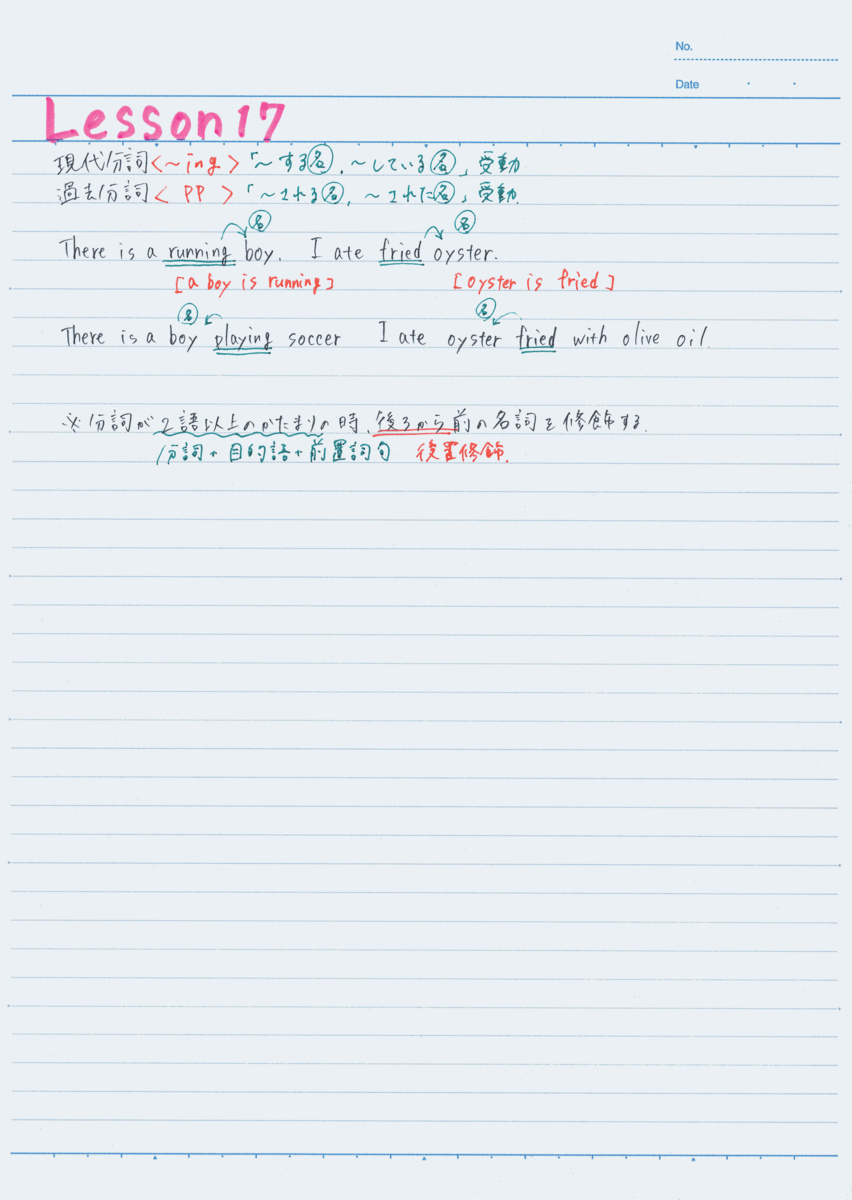 No.
Date
Lesson 17
現代分詞<~ing>「~する名、~している名」受動
過去分詞< PP >「~される名、~された名」受動
名 名
There is a running boy. I ate fried oyster.
[a boy is running] [oyster is fried]
名 名
There is a boy playing soccer I ate oyster fried with olive oil.
※分詞が2語以上のかたまりの時、後ろから前の名詞を修飾する.
分詞+目的語+前置詞句 後置修飾.